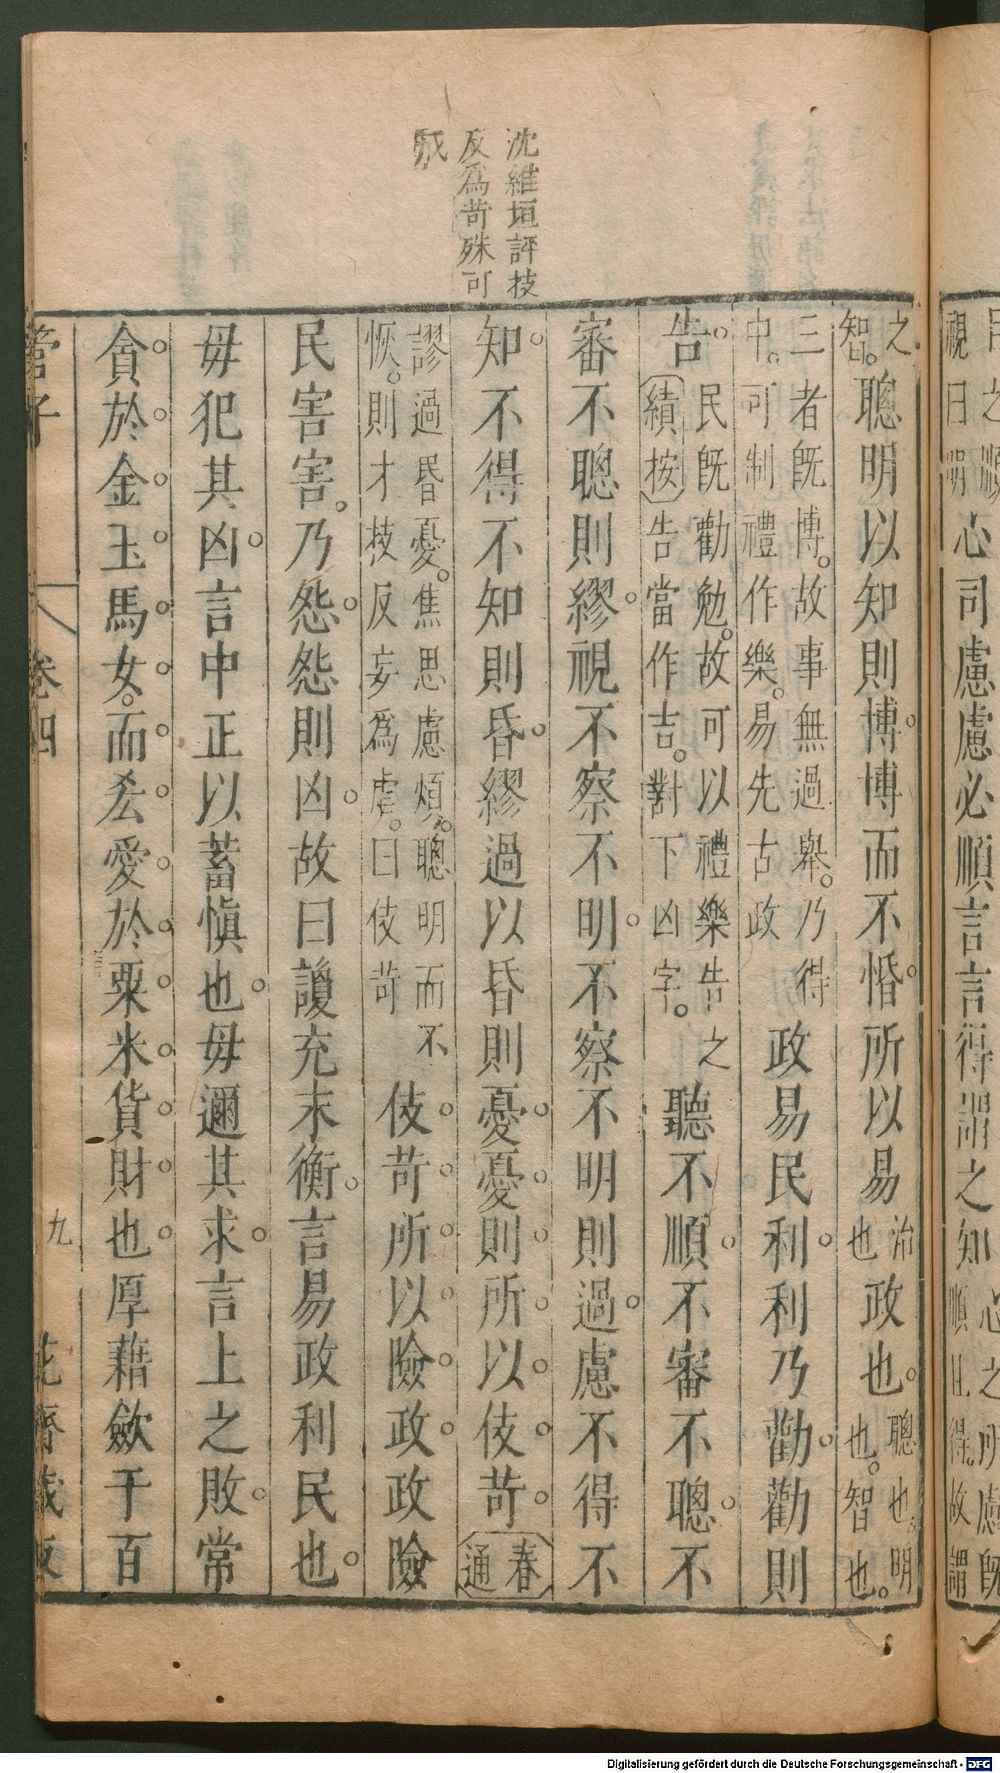 沈維垣評技
反為苛殊可
之智。聰明以知則博。博而不惛。所以易治也政也。聰也。明也。智也。
三者既博。故事無過舉。乃得中。可制禮作樂。易先古政政易民利。利乃勸。勸則
告。民既勸勉。故可以禮樂告之績按告當作吉。對下凶字。聽不順。不審不聰。不
審不聰則繆。視不察不明。不察不明則過。慮不得不
知。不得不知則昏。繆過以昏則憂。憂則所以伎苛。春通
謬過昏憂。焦思慮煩。聰明而不恢。則才技反妄為虐。曰伎苛伎苛所以險政。政險
民害。害乃怨。怨則凶。故曰讂充末衡。言易政利民也。
毋犯其凶。言中正以蓄慎也。毋邇其求。言上之敗。常
貪於金玉馬女。而㳒愛於粟米貨財也。厚藉歛于百
管子
卷四
九
花齋藏板
心司慮慮必順言言得謂之知
Digitalisierung gefördert durch die Deutsche Forschungsgemeinschaft - DFG